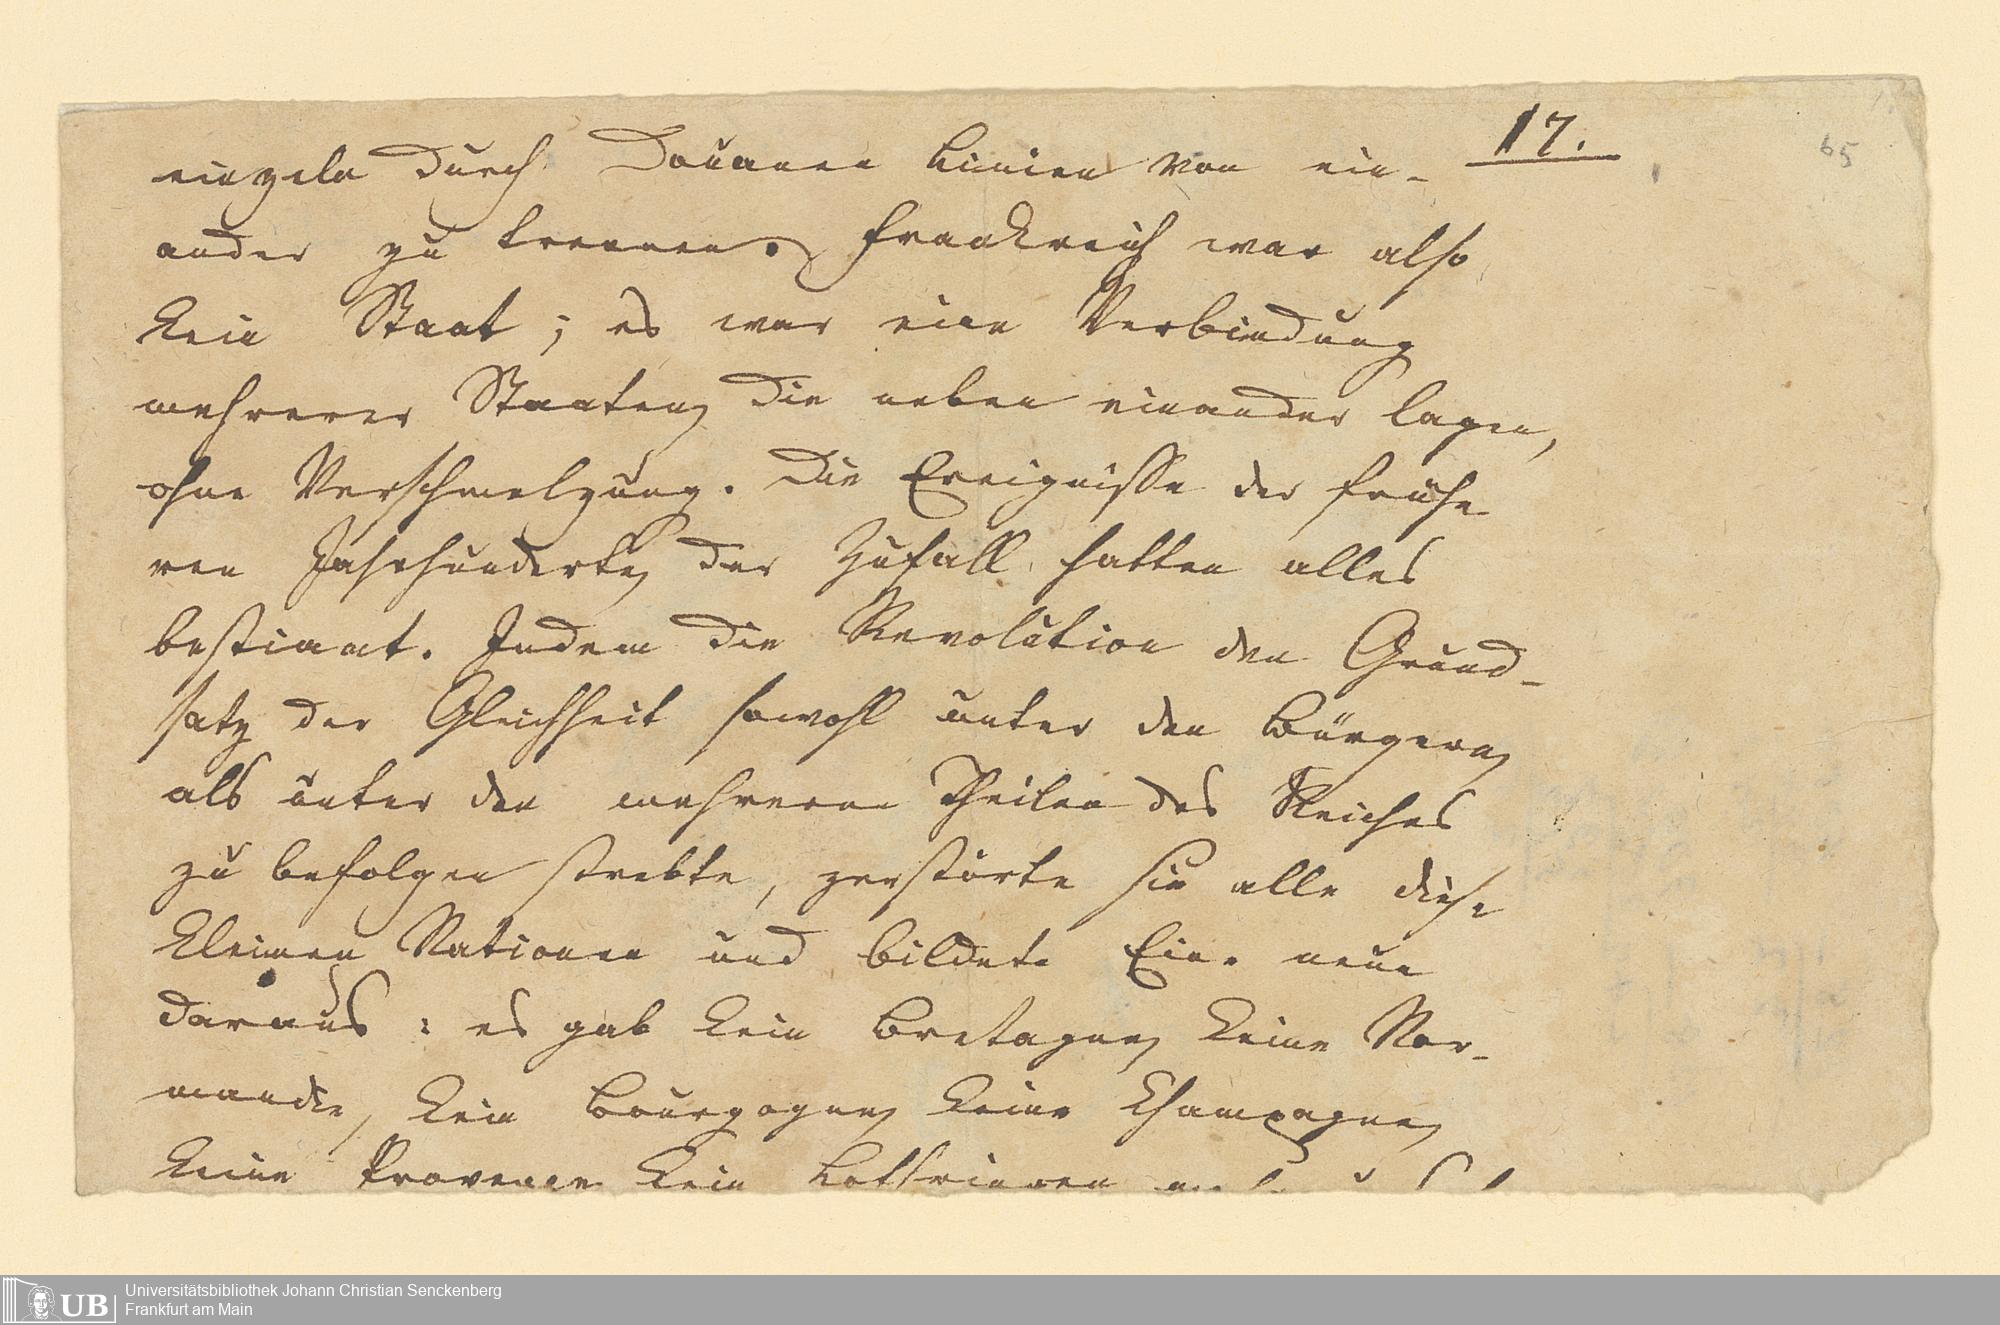 17.
65
einzeln durch Douanen Linien von ein-
ander zu trennen. Frankreich war also
kein Staat; es war eine Verbindung
mehrerer Staaten, die neben einander lagen,
ohne Verschmelzung. Die Ereignisse der frühe
ren Jahrhunderte, der Zufall hatten alles
bestimmt. Indem die Revolution den Grund-
satz der Gleichheit sowohl unter den Bürgern,
als unter den mehreren Theilen des Reiches
zu befolgen strebte, zerstörte sie alle diese
kleinen Nationen und bildete Eine neue
daraus: es gab kein Bretagne, keine Nor-
mandie, kein Bourgogne, keine Champagne,
keine Provence kein Lothringen
Universitätsbibliothek Johann Christian Senckenberg
Frankfurt am Main
UB